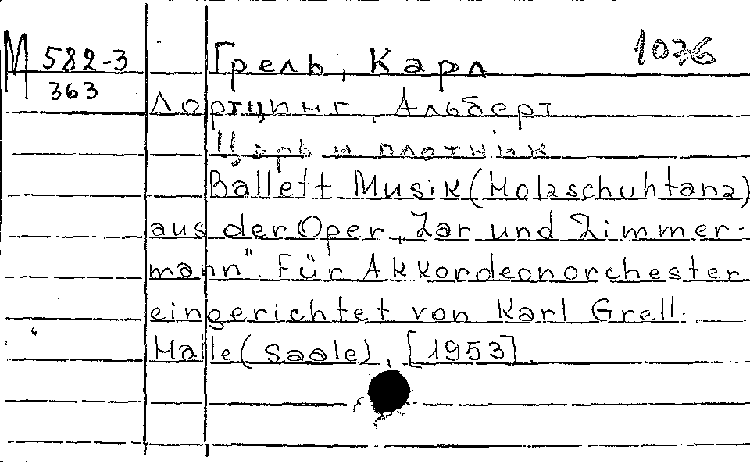 М 582-3
363
Грель, Карл 1036
Лортцинг, Альберт
Царь и плотник
Ballett Musik (Holzschuhtanz)
aus der Oper „Zar und Zimmer-
mann". Für Akkordeonorchester
eingerichtet von Karl Grell.
Halle (Saale), [1953].